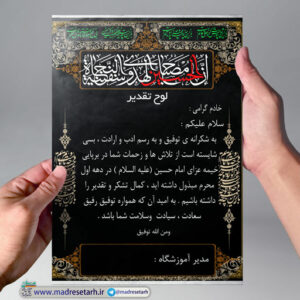 ان الحسین مصباح الهدی و سفینة النجاة
لوح تقدیر
خادم گرامی :
سلام علیکم :
به شکرانه ی توفیق و به رسم ادب و ارادت ، بسی
شایسته است از تلاش ها و زحمات شما در برپایی
خیمه عزای امام حسین (علیه السلام ) در دهه اول
محرم مبذول داشته اید ، کمال تشکر و تقدیر را
داشته باشیم . به امید آن که همواره توفیق رفیق
سعادت ، سیادت وسلامت شما باشد .
ومن الله توفیق
مدیر آموزشگاه :
www.madresetarh.ir @madresetarh